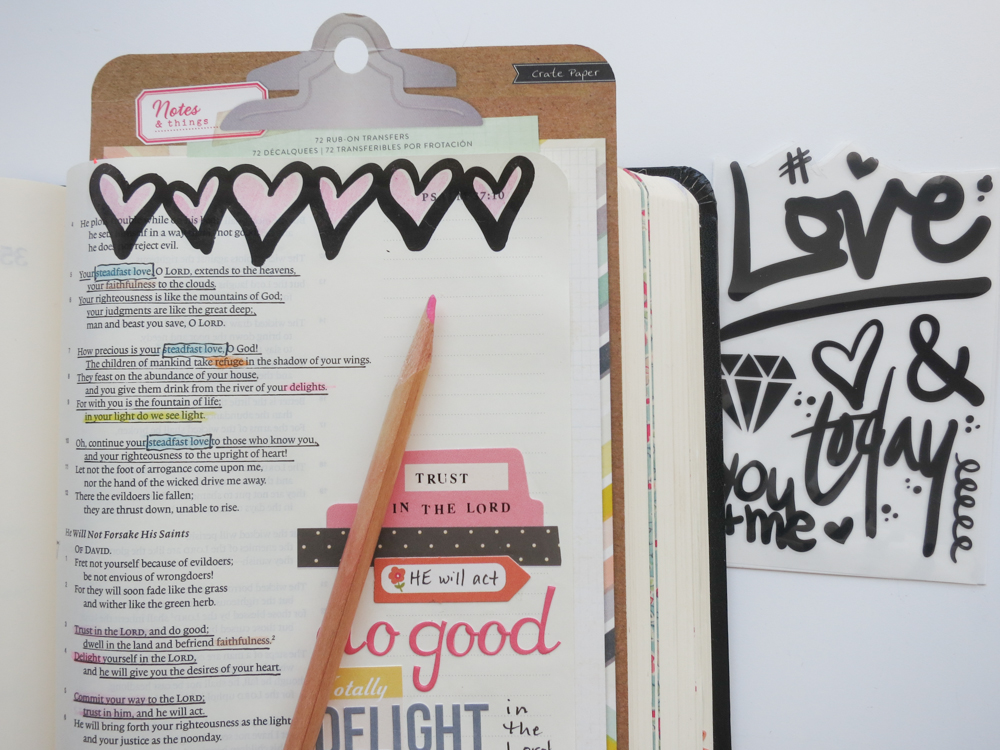 Crate Paper
Notes
& things
72 RUB-ON TRANSFERS
72 DÉCALQUÉES | 72 TRANSFERIBLES POR FROTACIÓN
4 He plots trouble while on his
he sets himself in a way not good;
he does not reject evil.
5 Your steadfast love, O LORD, extends to the heavens,
your faithfulness to the clouds.
6 Your righteousness is like the mountains of God;
your judgments are like the great deep;
man and beast you save, O LORD.
7 How precious is your steadfast love, O God!
The children of mankind take refuge in the shadow of your wings.
8 They feast on the abundance of your house,
and you give them drink from the river of your delights.
9 For with you is the fountain of life;
in your light do we see light.
10 Oh, continue your steadfast love to those who know you,
and your righteousness to the upright of heart!
11 Let not the foot of arrogance come upon me,
nor the hand of the wicked drive me away.
12 There the evildoers lie fallen;
they are thrust down, unable to rise.
He Will Not Forsake His Saints
OF DAVID.
Fret not yourself because of evildoers;
be not envious of wrongdoers!
2 For they will soon fade like the grass
and wither like the green herb.
3 Trust in the LORD, and do good;
dwell in the land and befriend faithfulness.2
4 Delight yourself in the LORD,
and he will give you the desires of your heart.
5 Commit your way to the LORD;
trust in him, and he will act.
6 He will bring forth your righteousness as the light
and your justice as the noonday.
TRUST
IN THE LORD
HE will act
do good
totally
DELIGHT
in
the
Lord
#
Love
&
today
you
+me